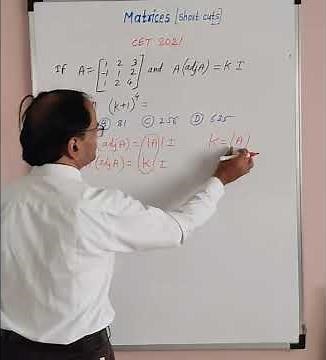 Matrices [short cuts]
CET 2021
If A = [1 2 3
-1 1 2
1 2 4] and A(adj A) = K I
(k+1)^4 =
81 Ⓒ 256 Ⓓ 625
adj A) = |A| I K = |A|
adj A) = K I